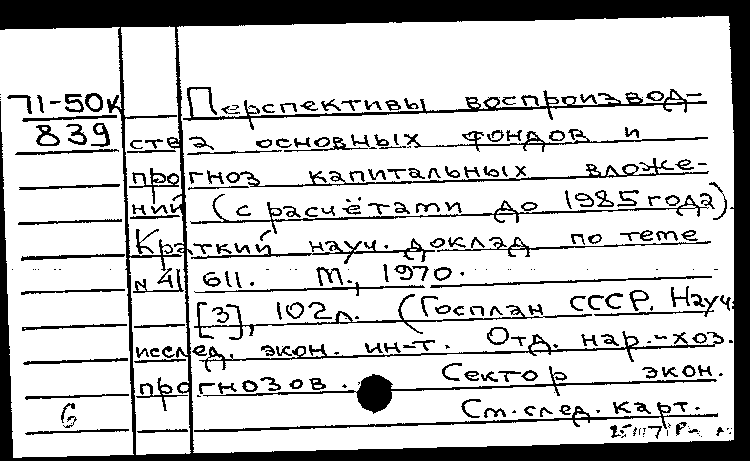 71-50к Перспективы воспроизвод-
839 ства основных фондов и
прогноз капитальных вложе-
ний (с расчётами до 1985 года).
Краткий науч. доклад по теме
N 41 611. М., 1970.
[3], 102л. (Госплан СССР. Науч.
исслед. экон. ин-т. Отд. нар.-хоз.
прогнозов. Сектор экон.
6 См. след. карт.